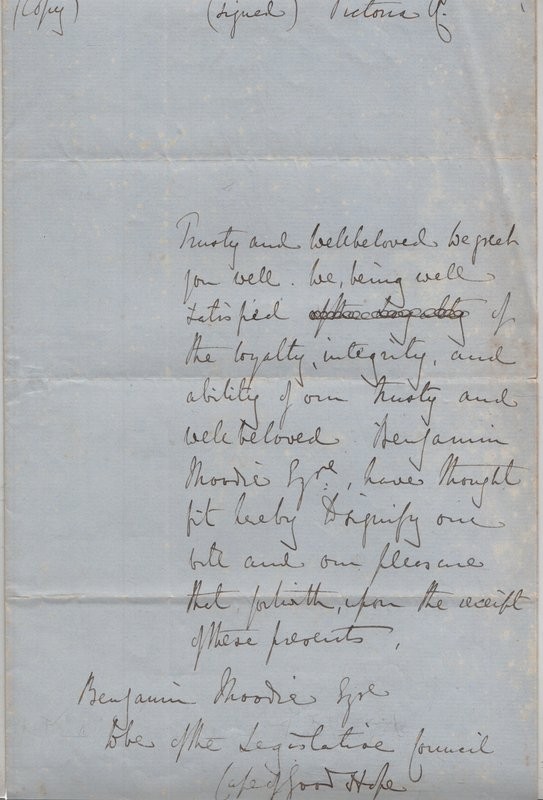 (Copy) (signed) Victoria R.
Trusty and Wellbeloved We greet
you well. We, being well
satisfied of the loyalty of
the loyalty, integrity, and
ability of our Trusty and
well beloved Benjamin
Moodie Esqre, have thought
fit hereby to signify our
will and our pleasure
that forthwith, upon the receipt
of these presents,
Benjamin Moodie Esqre
to be of the Legislative Council
Cape of Good Hope